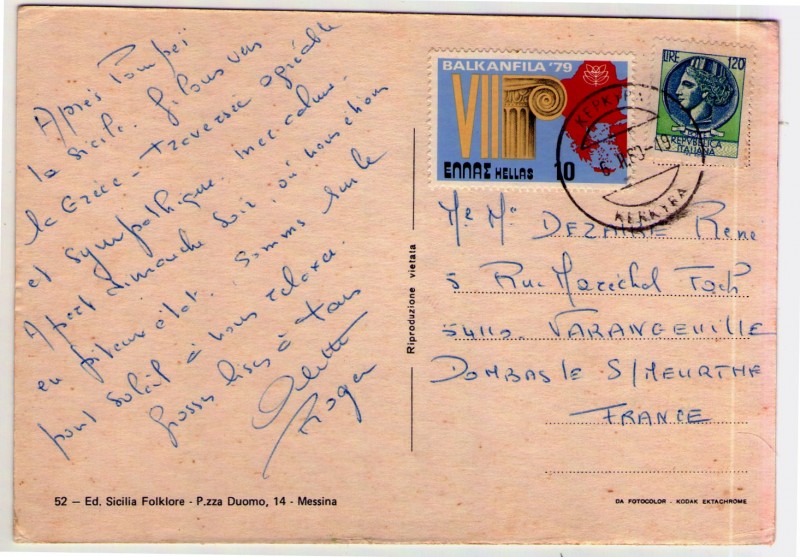 Après Pompeï
la Sicile. filons vers
la Grèce - Traversée agréable
et sympathique. Mer calme.
Apart dimanche soir, où nous étions
en piteux état. Sommes sur le
pont soleil à nous relaxer.
Grosses bises à tous
Odette
Roger
52 – Ed. Sicilia Folklore - P.zza Duomo, 14 - Messina
Riproduzione vietata
BALKANFILA '79
VII
ΕΛΛΑΣ HELLAS 10
LIRE 120
REPVBBLICA
ITALIANA
ΚΕΡΚΥΡΑ
KERKYRA
Mr Me DEZAIRE René
5 Rue Maréchal Foch
54110. VARANGEVILLE
DOMBASLE S/MEURTHE
FRANCE
DA FOTOCOLOR - KODAK EKTACHROME